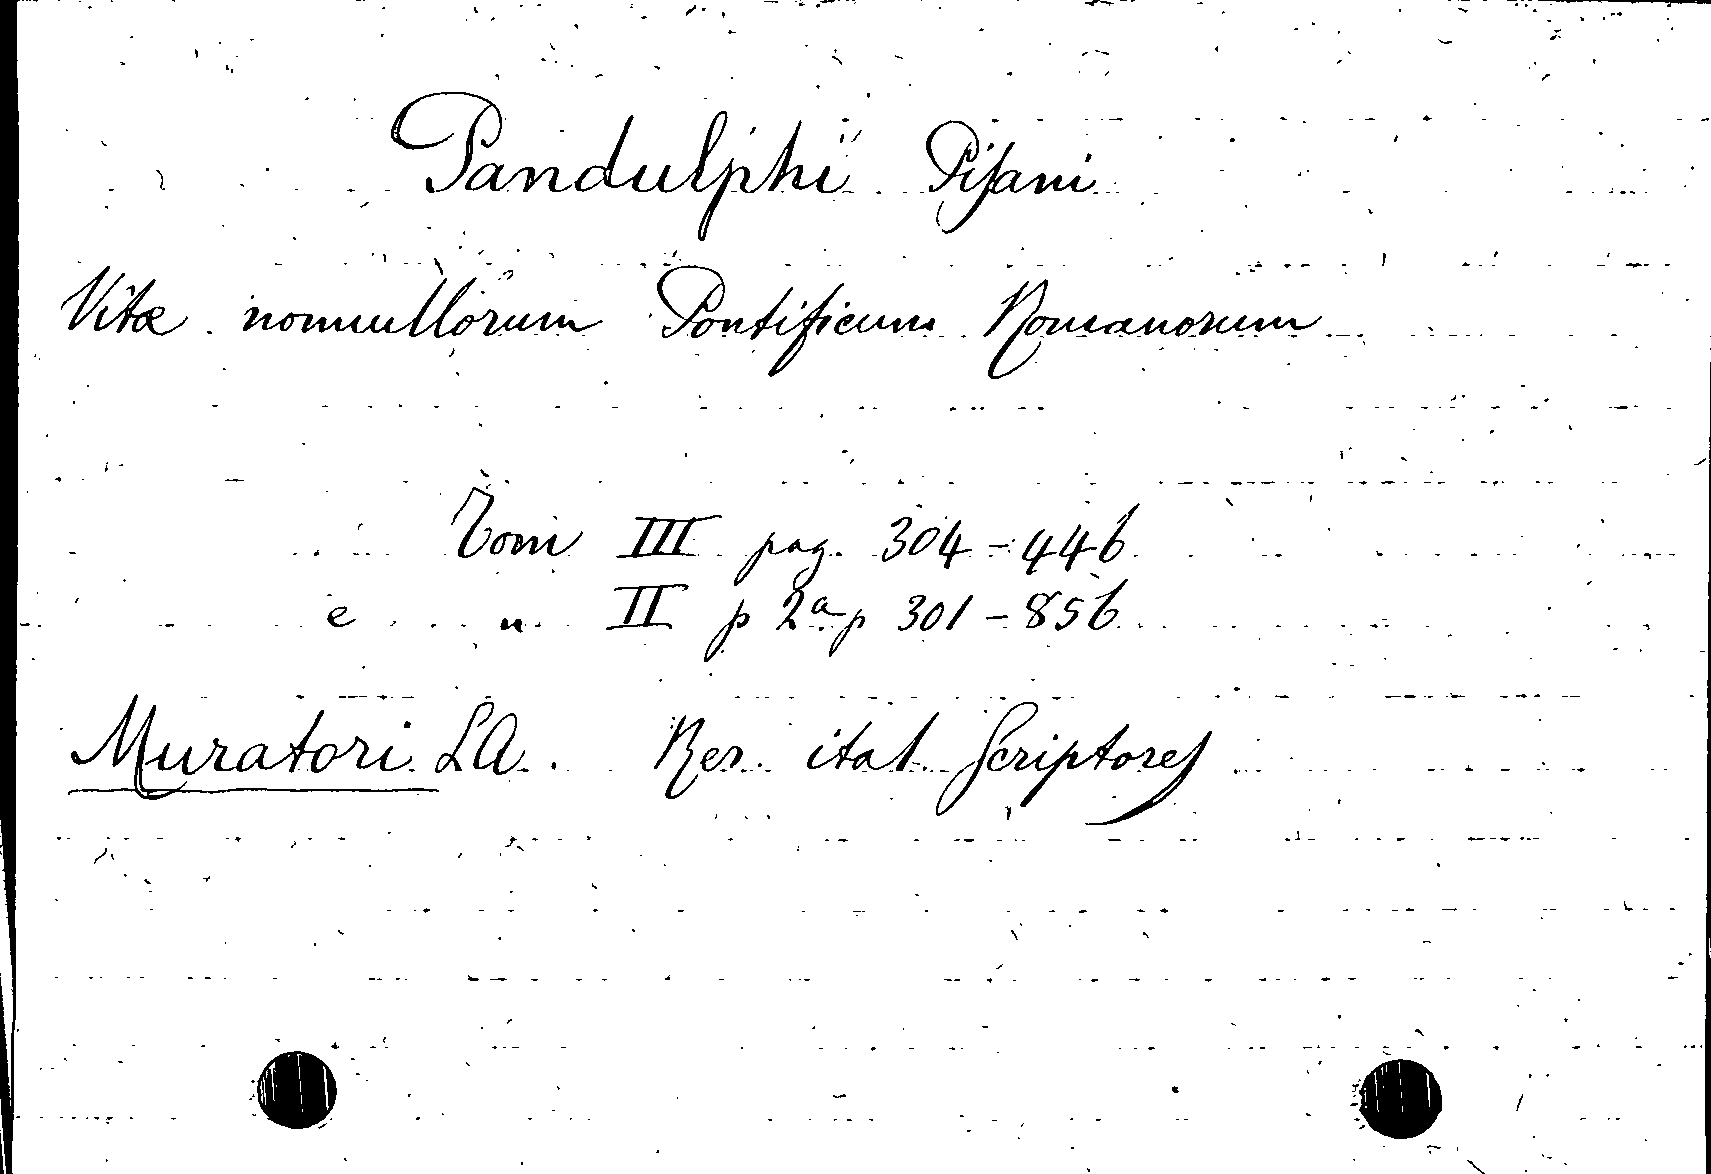 Pandulphi Pisani
Vitæ nonnullorum Pontificum Romanorum
Tom III pag. 304-446
e " II p 2ª p 301-856
Muratori LA. Rer. ital. Scriptores